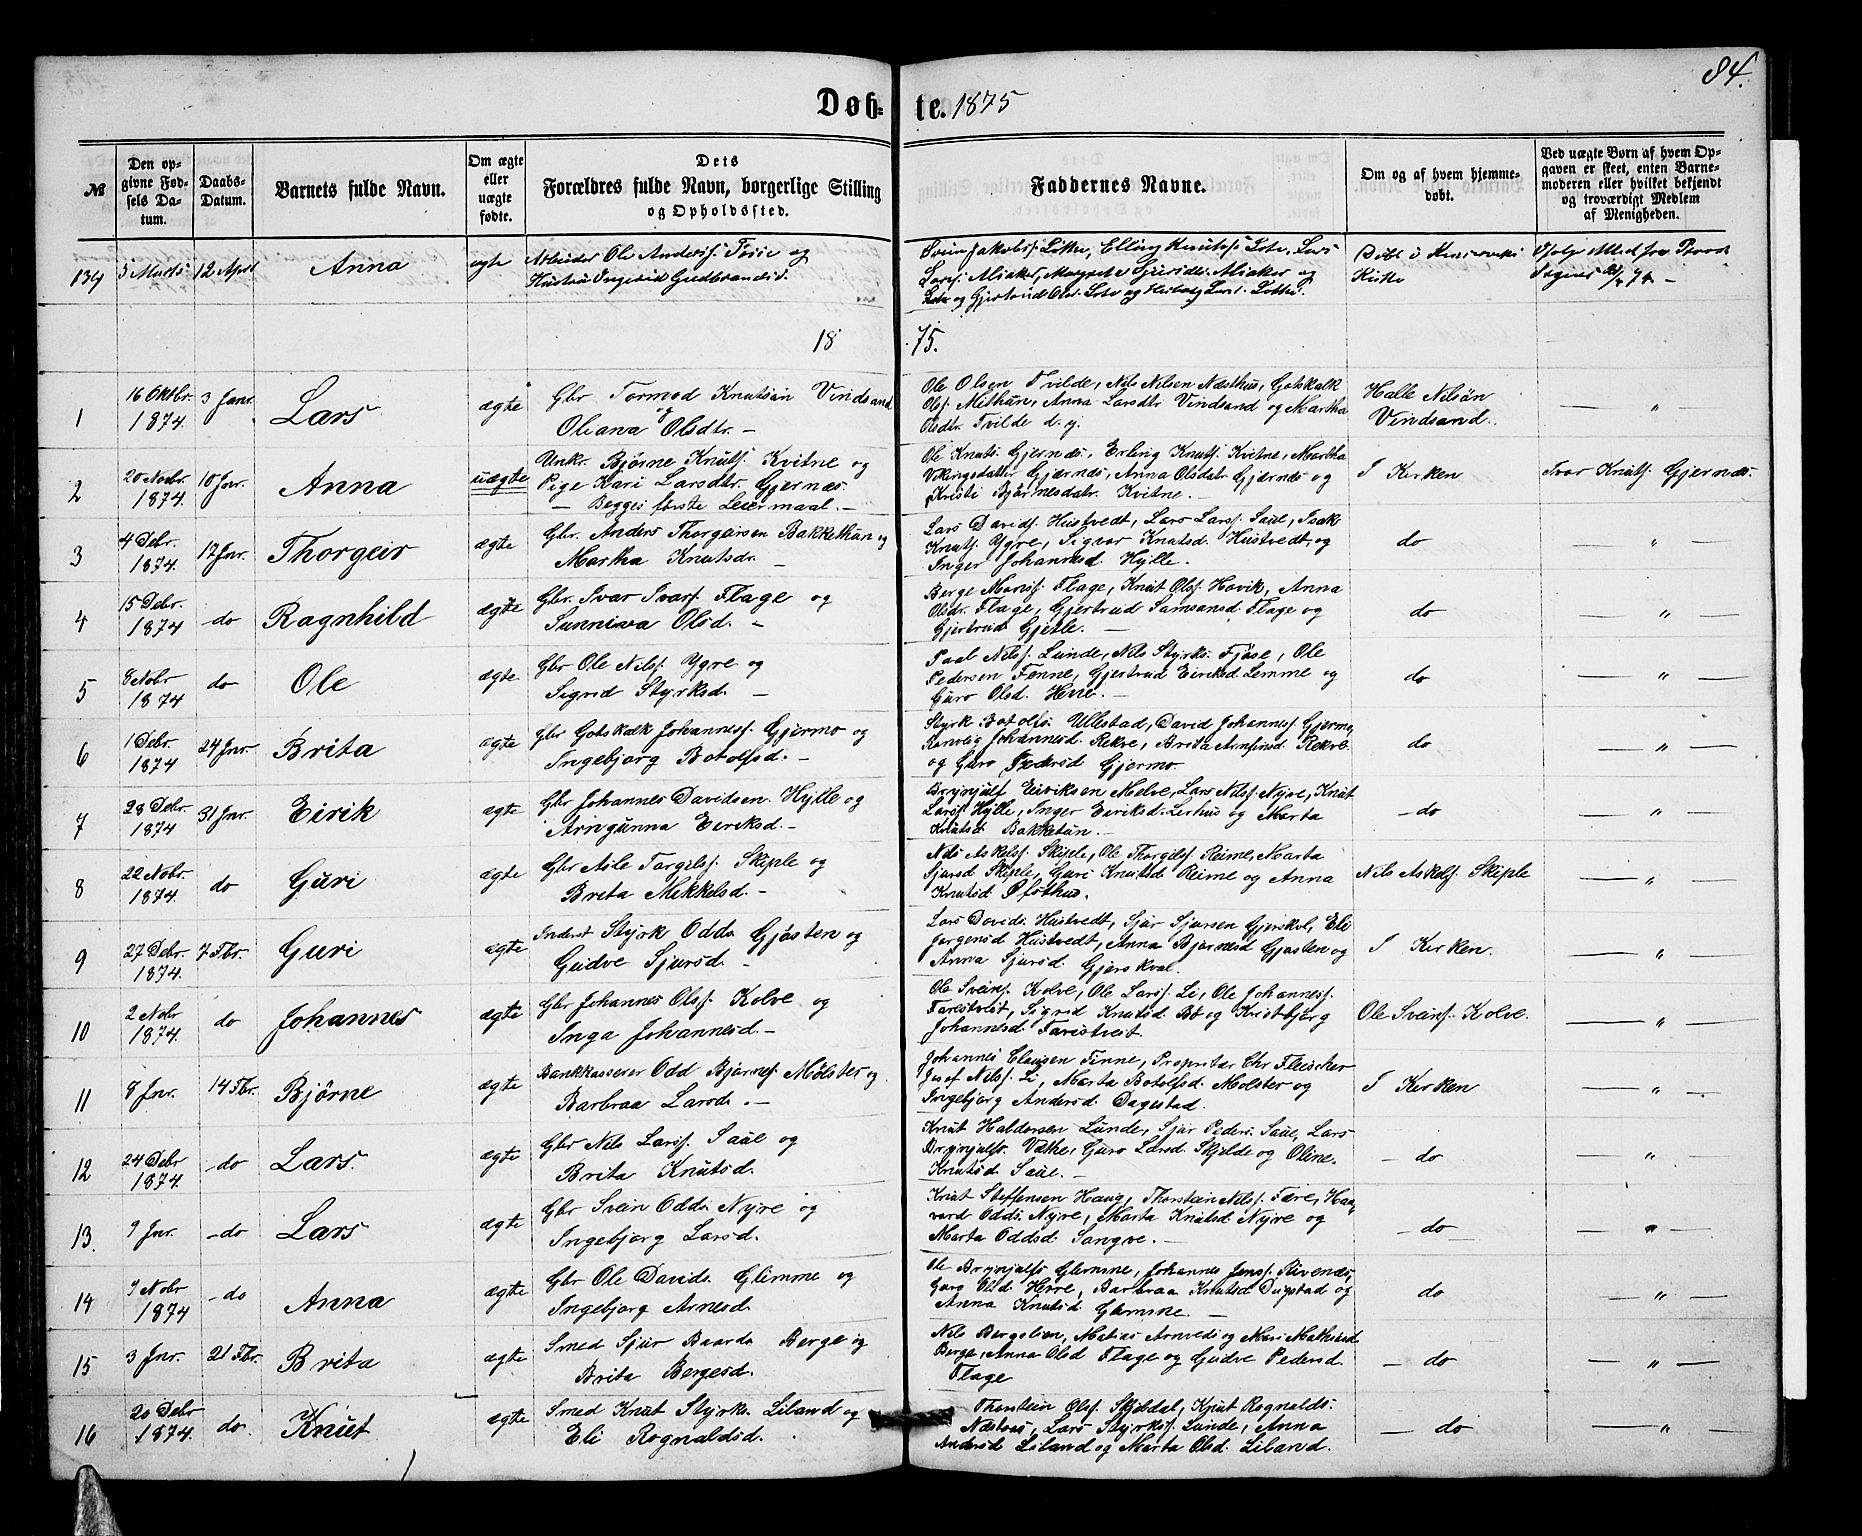 84.
Døb-te. 1875
№
Den opgivne Fødsels Datum.
Daabs-Datum.
Barnets fulde Navn.
Om ægte eller uægte fødte.
Dets Forældres fulde Navn, borgerlige Stilling og Opholdssted.
Faddernes Navne.
Om og af hvem hjemmedøbt.
Ved uægte Børn af hvem Opgaven er skeet, enten Barnemoderen eller hvilket bekjendt og troværdigt Medlem af Menigheden.
134 5 Marts 12 April Anna ægte Arbeider Ole Anders. og
Hustru Ingerid Gudbrandsd.
18 75.
1 16 Oktbr. 1874. 3 Janr. Lars ægte Gbr Tormod Knutsøn Vindsand
og Oleana Olsdtr. —
Ole Olsen Tvilde, Nils Nilsen Næsthus, Gotskalk
Ols. Methun, Anna Larsdtr Vindsand og Martha
Olsdtr. Tvilde d. y.
Halle Nilsøn
Vindsand. — „
2 20 Novbr. 1874. 10 Jnr. Anna uægte Unkr. Bjørne Knuts. Kvitne og
Pige Kari Larsdtr. Gjernæs
— Begges første Leiermaal. —
Ole Knuts. Gjernæs, Erling Knuts. Kvitne, Martha
Vikingsdatter Gjernæs, Anna Olsdatr. Gjernæs og
Kristi Bjørnesdatr. Kvitne.
I Kirken Ivar Knuts. Gjernæs.
3 4 Debr. 1874. 17 Jnr. Thorgeir ægte Gbr. Anders Thorgeirsen Bakkethun og
Martha Knutsdr. —
Lars Davids. Hustvedt, Lars Lars. Saue, Isak
Knuts. Ygre, Sigvor Knutsd. Hustvedt, og
Inger Johannesd. Hylle.
do — „ —
4 15 Debr. 1874 do Ragnhild ægte Gbr. Ivar Ivars. Flage og
Sunniva Olsd. —
Berge Monss. Flage, Knut Ols. Havik, Anna
Olsdr. Flage, Gjertrud Samsonsd. Flage og
Gjertrud Gjelle. —
do — „ —
5 8 Nobr 1874 do Ole ægte Gbr Ole Nils. Ygre og
Sigrid Styrksd. —
Paal Nils. Lunde, Nils Styrks. Fjøse, Ole
Pedersen Fenne, Gjertrud Eiriksd. Lemme og
Guro Olsd. Herre. —
do — „ —
6 1 Debr. 1874 24 Jnr. Brita ægte Gbr Gotskalk Johanness. Gjermo og
Ingebjorg Botolfsd. —
Styrk Botolfs. Ullestad, David Johanness. Gjermo,
Ranveig Johannesd. Rekve, Brita Arnfinsd. Rekve
og Guro Gjermo.
do — „ —
7 28 Debr. 1874 31 Jnr. Eirik ægte Gbr Johannes Davidsen Hylle og
Arngunna Eiriksd. —
Brynjulf Eiriksen Melve, Lars Nils. Nyre, Knut
Lars. Hylle, Inger Eiriksd. Lerhus og Marta
Knutsd Bakketun. —
— do — „ —
8 22 Nobr. 1874. do Guri ægte Gbr Asle Torgils. Skiple og
Brita Mikkelsd. —
Nils Askels. Skiple, Ole Thorgils. Reime, Marta
Sjursd Skiple, Guri Knutsd Reime og Anna
Knutsd Ofothus.
Nils Askels. Skiple — „ —
9 27 Debr. 1874. 7 Fbr. Guri ægte Inderst Styrk Odds. Gjøsten og
Gudve Sjursd. —
Lars Davids. Hustvedt, Sjur Sjursen Gjerskvl, Eli
Jørgensd Hustvedt, Anna Bjørnesd Gjøsten og
Anna Sjursd. Gjerskval.
I Kirken. — „ —
10 2 Nobr 1874. do Johannes ægte Gbr Johannes Ols. Kolve og
Inga Johannesd. —
Ole Sveins. Kolve, Ole Lars. Li, Ole Johanness.
Farestveit, Sigrid Knutsd. Bø og Kristbjørg
Johannesd. Farestveit.
Ole Sveins. Kolve. — „ —
11 8 Jnr. 14 Fbr. Bjørne ægte Bankkasserer Odd Bjørnes. Mølster og
Barbraa Larsd. —
Johannes Clausen Finne, Proprietær Chr Fleischer
Josef Nils. Li, Marta Botolfsd. Mølster og
Ingebjorg Andersd. Dagestad.
I Kirken — „ —
12 24 Debr 1874. — do Lars. ægte Gbr Nils Lars. Saue og
Brita Knutsd.
Knut Haldorsen Lunde, Sjur Peders. Saue, Lars
Brynjulfs. Væthe, Guro Larsd. Skjelde og Oline
Knutsd. Saue. —
— do — „ —
13. 9 Jnr. — do Lars ægte Gbr Svein Odds. Nyre og
Ingebjorg Larsd.
Knut Steffensen Haug, Thorstein Nils. Fære, Haa
vard Odds. Nyre, Marta Knutsd Nyre og
Marta Oddsd. Sangve. —
— do — „ —
14 9 Nobr 1874 — do Anna ægte Gbr Ole Davids. Glimme og
Ingebjorg Arnesd.
Ole Brynjulfs Glimme, Johannes Jens. Rivenæs,
Guro Olsd. Herre, Barbraa Knutsd. Dugstad og
Anna Knutsd Glimme —
do — „ —
15 3 Jnr. 21 Fbr. Brita ægte Smed Sjur Baards. Berge og
Brita Bergesd.
Nils Bergslien, Matias Arnveds og Mari Mathisd
Berge, Anna Olsd Flage og Gudve Pedersd.
Flage
— do — „ —
16 20 Debr 1874. do Knut ægte Smed Knut Styrks. Liland og
Eli Rognaldsd.
Thorstein Ols. Skjeldal, Knut Rognalds.
Næteos, Lars Styrks. Lunde, Anna
Andersd Liland og Marta Olsd. Liland.
— do — „ —